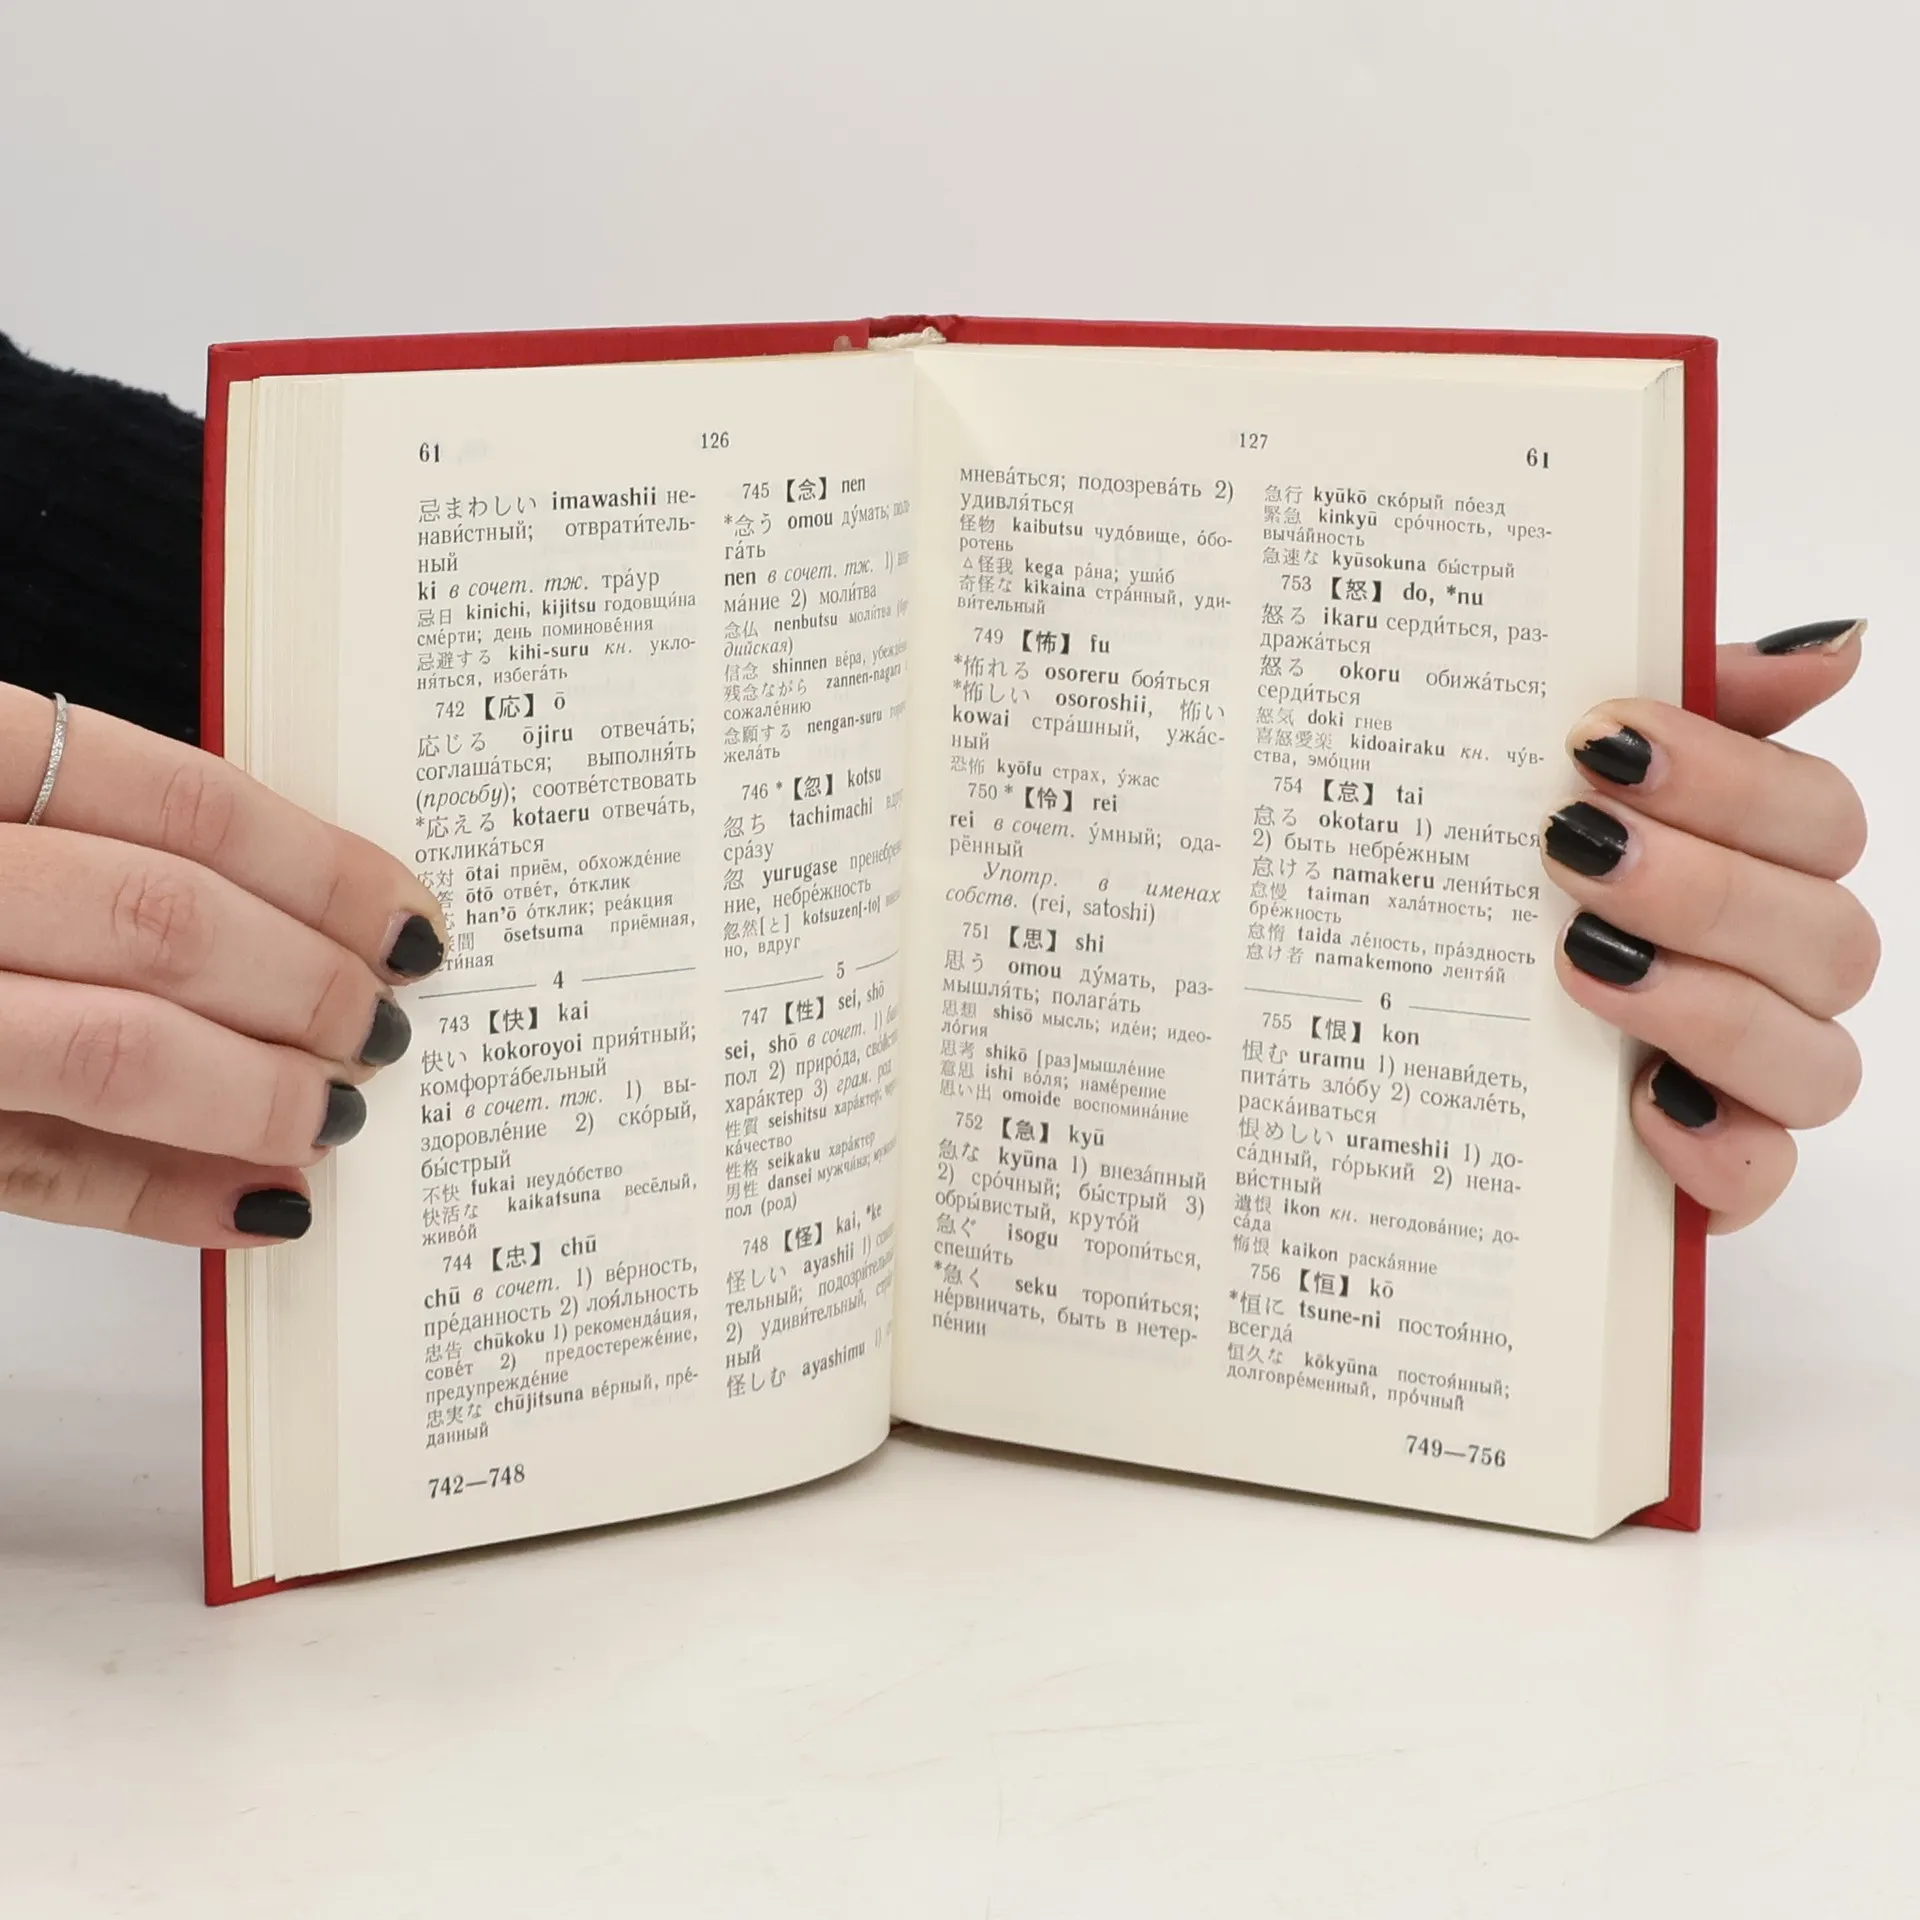 61
126
忌まわしい imawashii не-
нави́стный; отврати́тель-
ный
ki в сочет. тж. тра́ур
忌日 kinichi, kijitsu годовщи́на
сме́рти; день помино́ве́ния
忌避する kihi-suru кн. укло-
ня́ться, избега́ть
742 【応】 ō
応じる ōjiru отвеча́ть;
соглаша́ться; выполня́ть
(просьбу); соотве́тствовать
*応える kotaeru отвеча́ть,
откликáться
応対 ōtai приём, обхожде́ние
答 ōtō отве́т, о́тклик
han'ō о́тклик; реа́кция
間 ōsetsuma приёмная,
сти́ная
4
743 【快】 kai
快い kokoroyoi прия́тный;
комфорта́бельный
kai в сочет. тж. 1) вы-
здоровле́ние 2) ско́рый,
бы́стрый
不快 fukai неудо́бство
快活な kaikatsuna весёлый,
живо́й
744 【忠】 chū
chū в сочет. 1) ве́рность,
пре́данность 2) лоя́льность
忠告 chūkoku 1) рекоменда́ция,
сове́т 2) предостереже́ние,
предупрежде́ние
忠実な chūjitsuna ве́рный, пре́-
данный
742—748
745 【念】 nen
*念う omou ду́мать;
га́ть
nen в сочет. тж. 1)
ма́ние 2) моли́тва
念仏 nenbutsu моли́тва
дийская)
信念 shinnen ве́ра,
残念ながら zannen-nagara
сожале́нию
念願する nengan-suru
жела́ть
746 *【忽】 kotsu
忽ち tachimachi
сра́зу
忽 yurugase
ние, небре́жность
忽然[と] kotsuzen[-to]
но, вдруг
5
747 【性】 sei, shō
sei, shō в сочет. 1)
пол 2) приро́да,
хара́ктер 3) грам. род
性質 seishitsu хара́ктер;
ка́чество
性格 seikaku хара́ктер
男性 dansei мужчи́на;
пол (род)
748 【怪】 kai, *ke
怪しい ayashii 1)
тельный;
2) удиви́тельный,
ный
怪しむ ayashimu 1)
127
61
мнева́ться; подозрева́ть 2)
удивля́ться
怪物 kaibutsu чудо́вище, о́бо-
ротень
△怪我 kega ра́на; уши́б
奇怪な kikaina стра́нный, уди-
ви́тельный
749 【怖】 fu
*怖れる osoreru боя́ться
*怖しい osoroshii, 怖い
kowai стра́шный, ужа́с-
ный
恐怖 kyōfu страх, у́жас
750 *【怜】 rei
rei в сочет. у́мный; ода-
рённый
Употр. в именах
собств. (rei, satoshi)
751 【思】 shi
思う omou ду́мать, раз-
мышля́ть; полага́ть
思想 shisō мысль; иде́и; идео-
ло́гия
思考 shikō [раз]мышле́ние
意思 ishi во́ля; наме́рение
思い出 omoide воспомина́ние
752 【急】 kyū
急な kyūna 1) внеза́пный
2) сро́чный; бы́стрый 3)
обры́вистый, круто́й
急ぐ isogu торопи́ться,
спеши́ть
*急く seku торопи́ться;
не́рвничать, быть в нетер-
пе́нии
急行 kyūkō ско́рый по́езд
緊急 kinkyū сро́чность, чрез-
выча́йность
急速な kyūsokuna бы́стрый
753 【怒】 do, *nu
怒る ikaru серди́ться, раз-
дража́ться
怒る okoru обижа́ться;
серди́ться
怒気 doki гнев
喜怒愛楽 kidoairaku кн. чу́в-
ства, эмо́ции
754 【怠】 tai
怠る okotaru 1) лени́ться
2) быть небре́жным
怠ける namakeru лени́ться
怠慢 taiman хала́тность; не-
бре́жность
怠惰 taida ле́ность, пра́здность
怠け者 namakemono лентя́й
6
755 【恨】 kon
恨む uramu 1) ненави́деть,
пита́ть зло́бу 2) сожале́ть,
раска́иваться
恨めしい urameshii 1) до-
са́дный, го́рький 2) нена-
ви́стный
遺恨 ikon кн. негодова́ние; до-
са́да
悔恨 kaikon раска́яние
756 【恒】 kō
*恒に tsune-ni постоя́нно,
всегда́
恒久な kōkyūna постоя́нный;
долговре́менный, про́чный
749—756